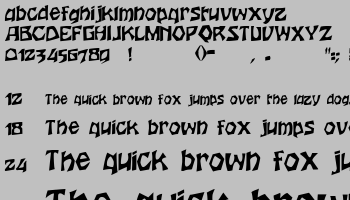 abcdefghijklmnopqrstuvwxyz
ABCDEFGHIJKLMNOPQRSTUVWXYZ
0123456780 ! ()- , . "";
12 The quick brown fox jumps over the lazy dog.
18 The quick brown fox jumps over
24 The quick brown fox ju
The quick brow